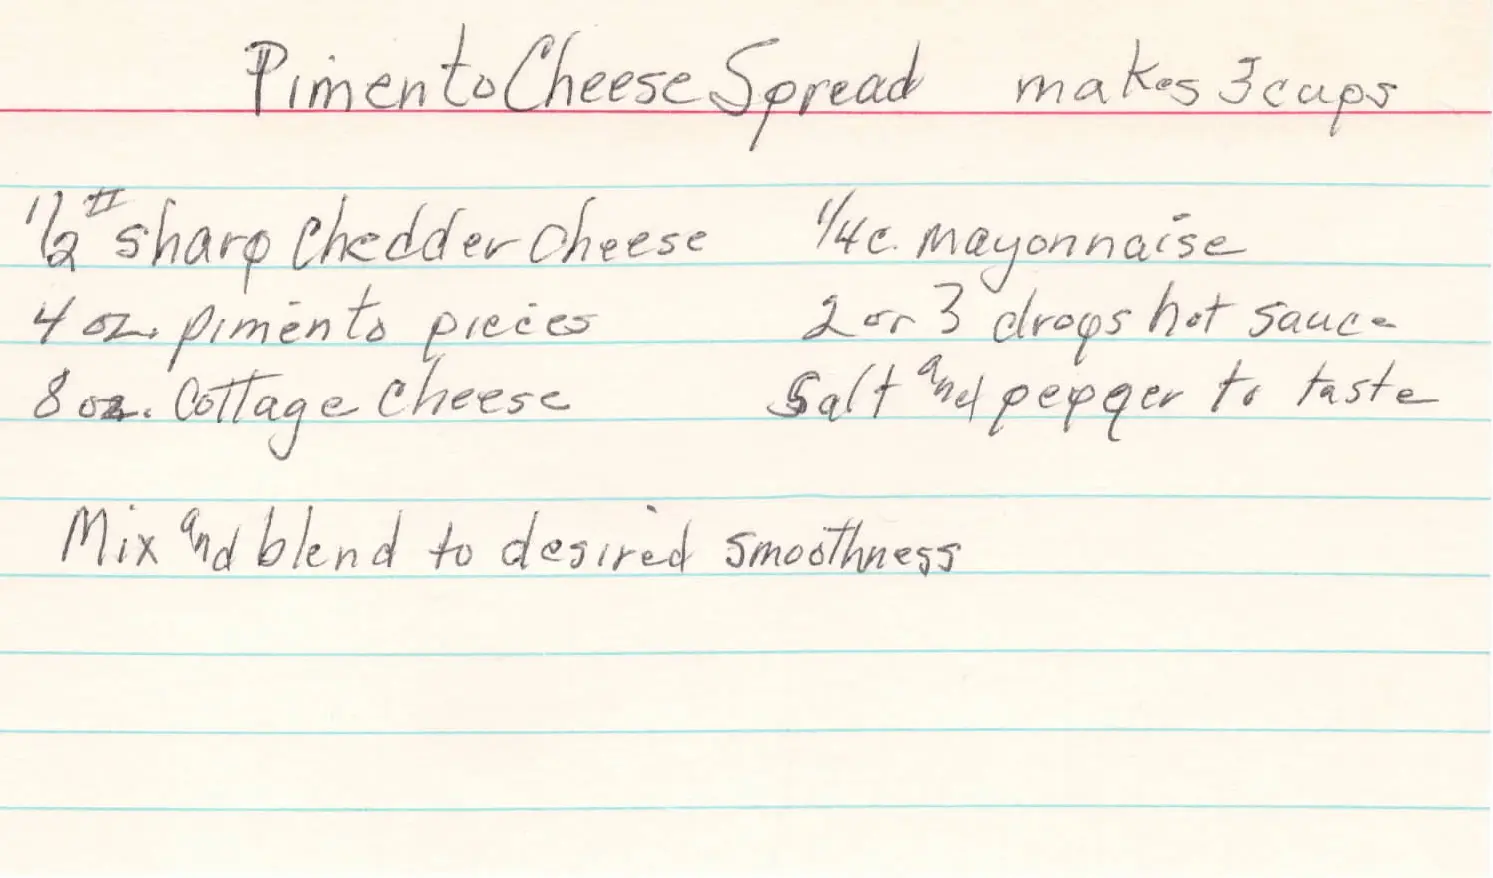 Pimento Cheese Spread makes 3 cups
1/2 # sharp Chedder Cheese 1/4 c. mayonnaise
4 oz. pimento pieces 2 or 3 drops hot sauce
8 oz. Cottage Cheese Salt and pepper to taste
Mix and blend to desired smoothness